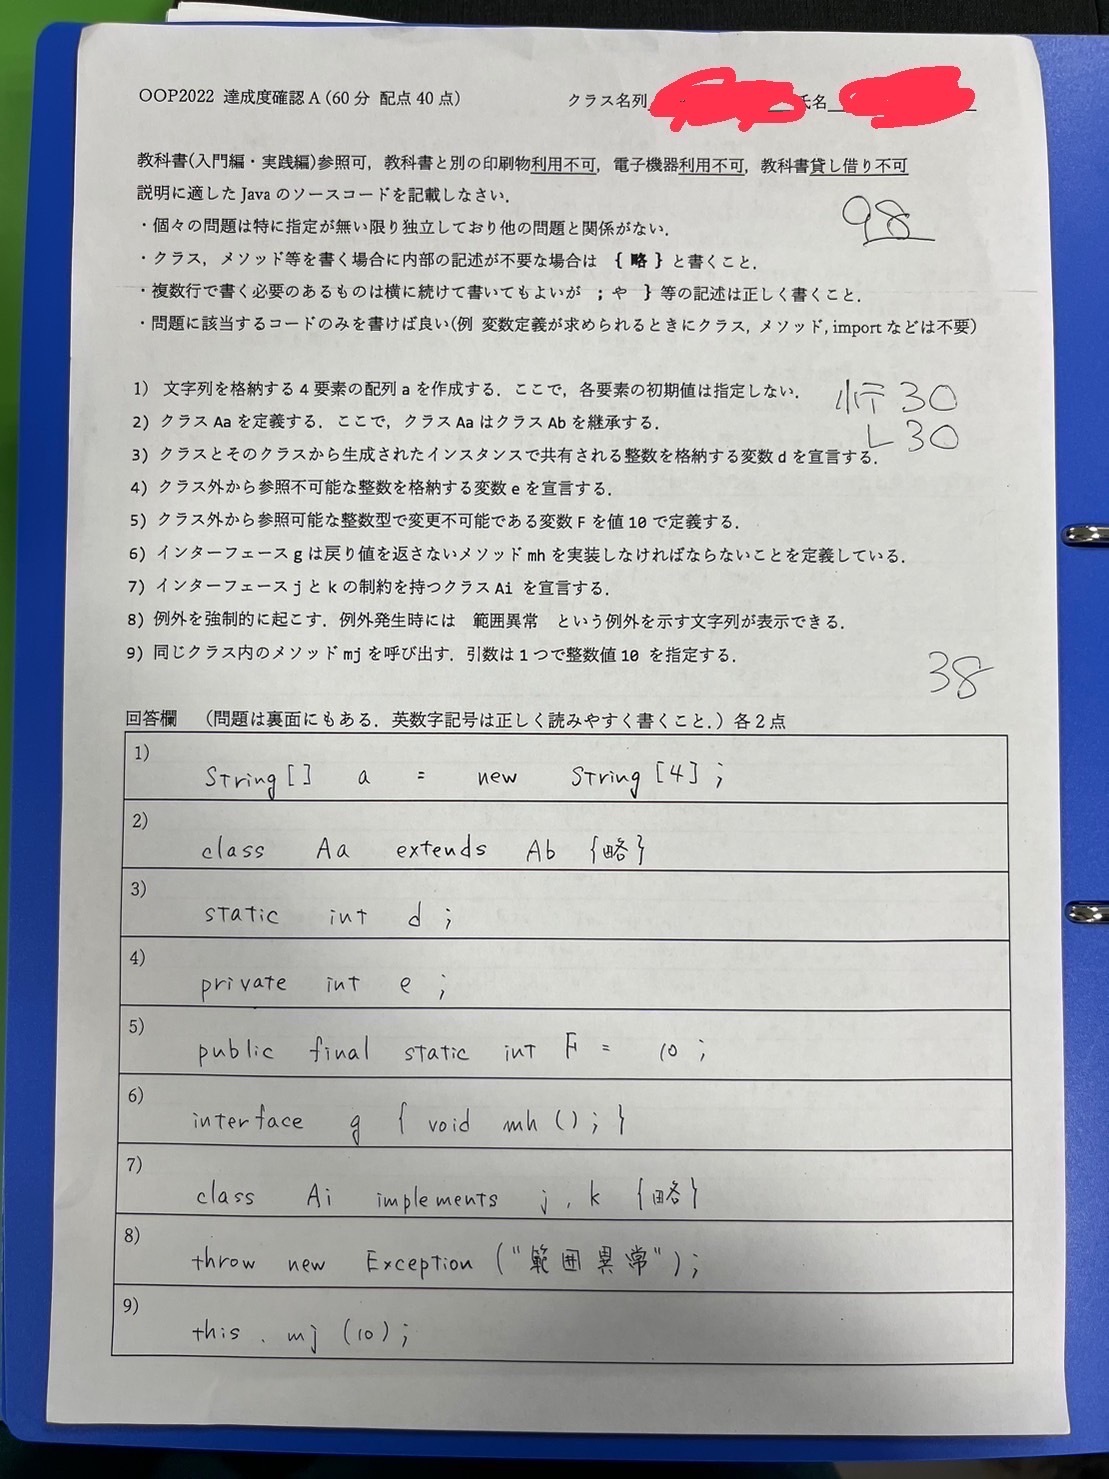 OOP2022 達成度確認 A (60 分 配点 40 点)
クラス名列
氏名
教科書(入門編・実践編)参照可，教科書と別の印刷物利用不可，電子機器利用不可，教科書貸し借り不可
説明に適した Java のソースコードを記載しなさい．
98
・個々の問題は特に指定が無い限り独立しており他の問題と関係がない．
・クラス，メソッド等を書く場合に内部の記述が不要な場合は { 略 } と書くこと．
・複数行で書く必要のあるものは横に続けて書いてもよいが ; や } 等の記述は正しく書くこと．
・問題に該当するコードのみを書けば良い(例 変数定義が求められるときにクラス, メソッド, import などは不要)
1) 文字列を格納する 4 要素の配列 a を作成する．ここで，各要素の初期値は指定しない．
30
2) クラス Aa を定義する．ここで，クラス Aa はクラス Ab を継承する．
30
3) クラスとそのクラスから生成されたインスタンスで共有される整数を格納する変数 d を宣言する．
4) クラス外から参照不可能な整数を格納する変数 e を宣言する．
5) クラス外から参照可能な整数型で変更不可能である変数 F を値 10 で定義する．
6) インターフェース g は戻り値を返さないメソッド mh を実装しなければならないことを定義している．
7) インターフェース j と k の制約を持つクラス Ai を宣言する．
8) 例外を強制的に起こす．例外発生時には 範囲異常 という例外を示す文字列が表示できる．
9) 同じクラス内のメソッド mj を呼び出す．引数は 1 つで整数値 10 を指定する．
38
回答欄 (問題は裏面にもある．英数字記号は正しく読みやすく書くこと．) 各 2 点
1) String[] a = new String[4];
2) class Aa extends Ab {略}
3) static int d ;
4) private int e ;
5) public final static int F = 10 ;
6) interface g { void mh (); }
7) class Ai implements j , k {略}
8) throw new Exception ("範囲異常");
9) this . mj (10);